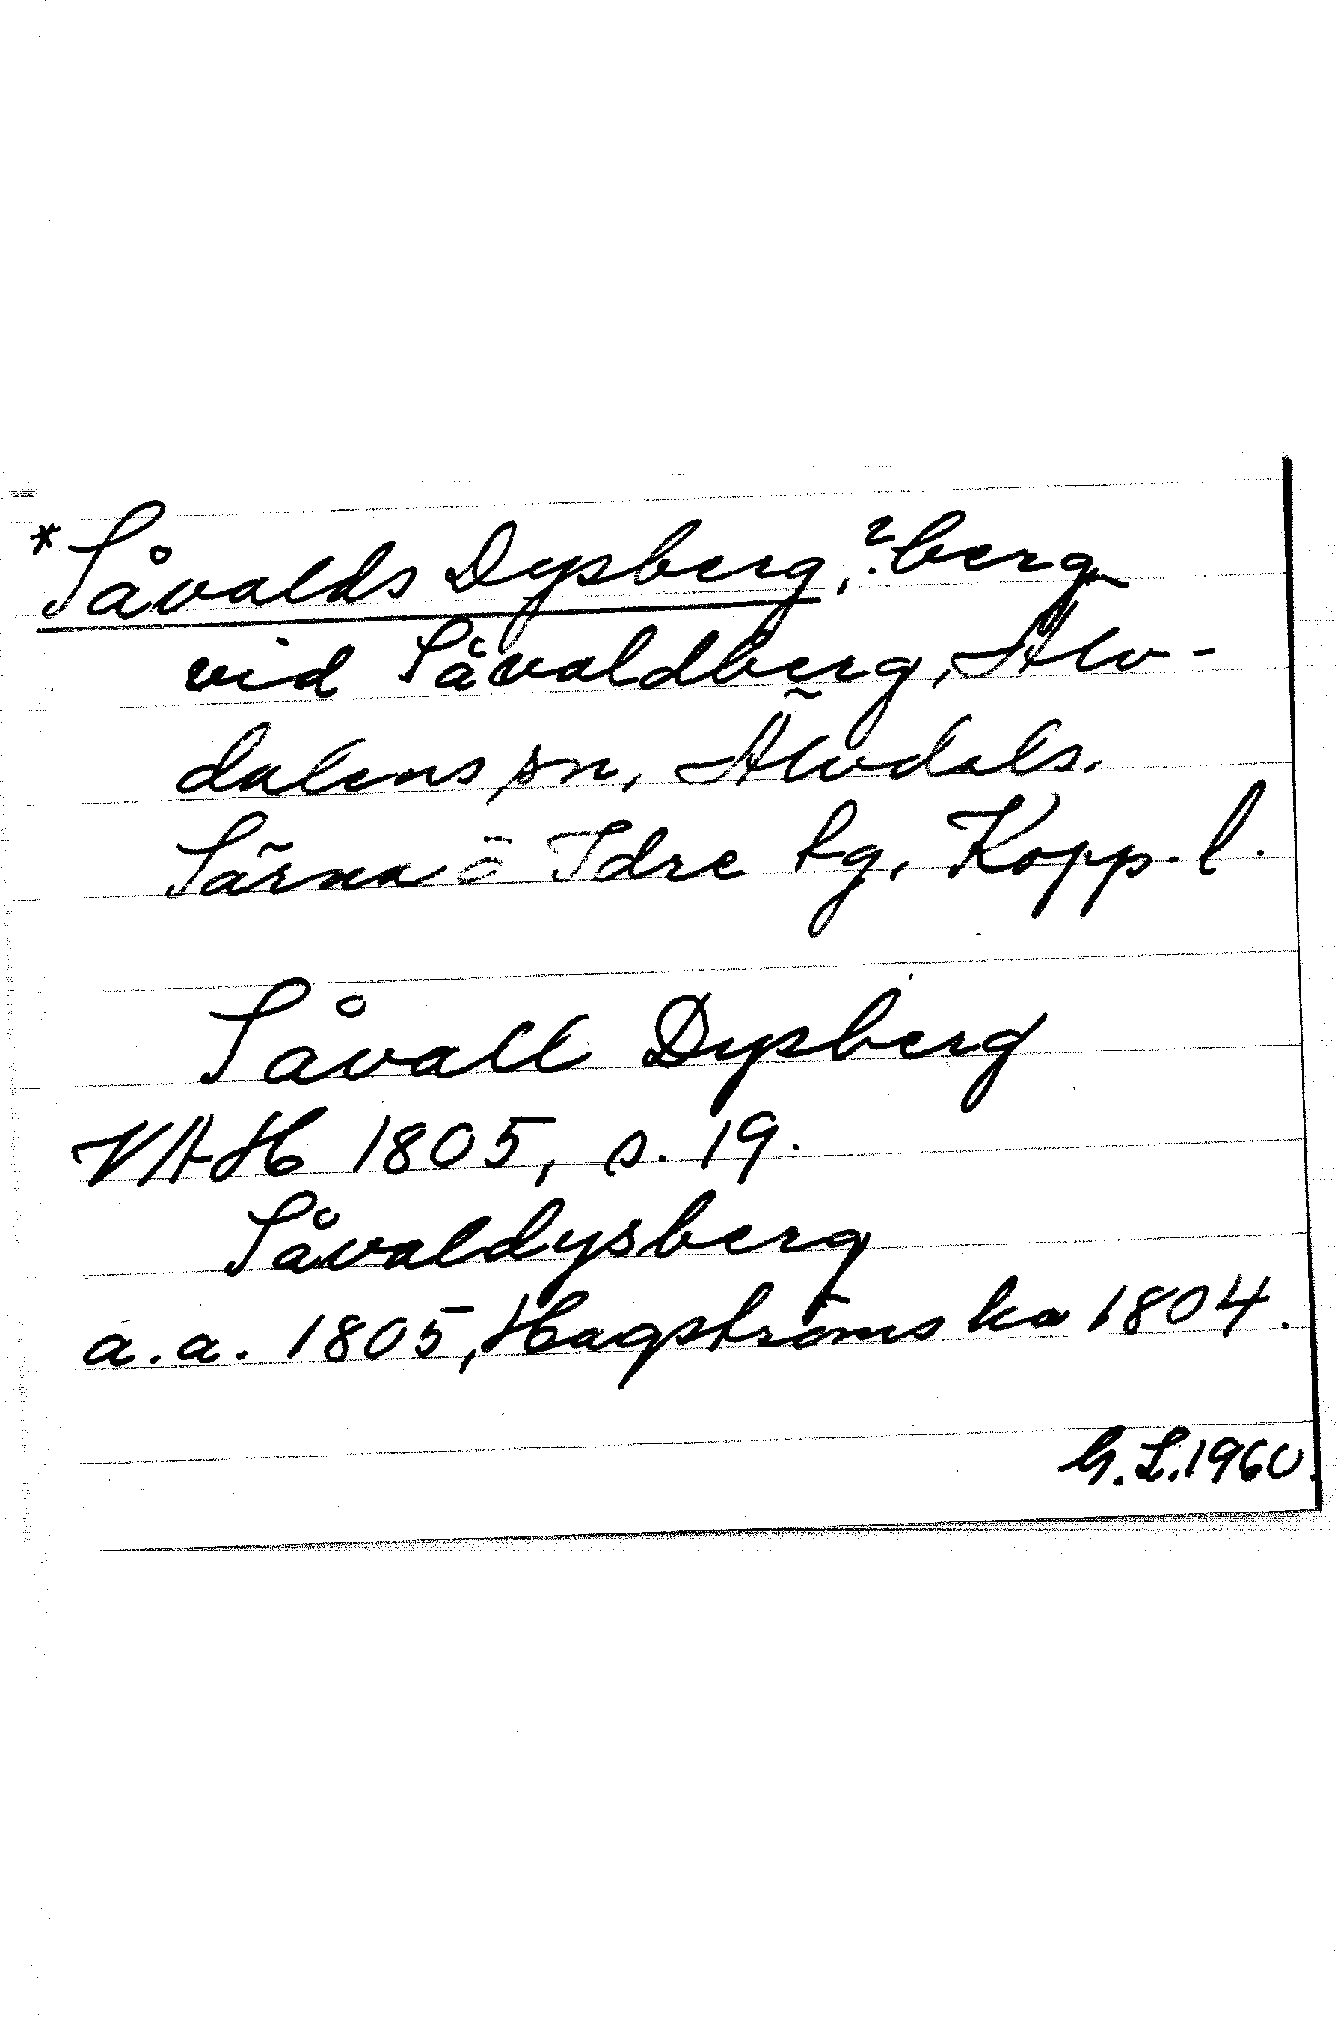 *Såvalds Dysberg, ? berg
vid Såvaldberg, Älv-
dalens sn, Älvdals.
Särna o Idre tg, Kopp. l.
Såvall Dysberg
VAH 1805, s. 19.
Såvaldysberg
a.a. 1805, Hagströms ka 1804.
G. L. 1960.